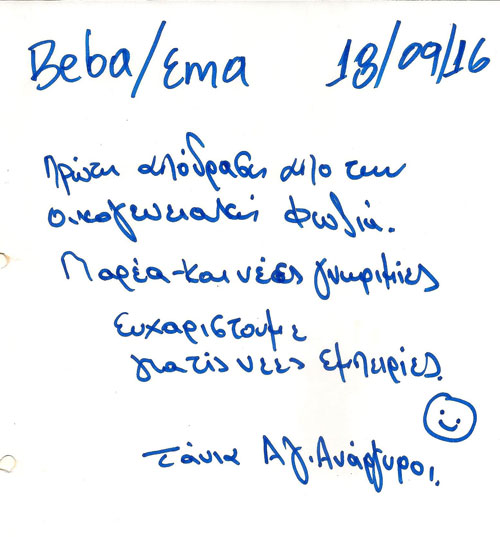 Beba/Ema 18/09/16
Πρώτη απόδραση απο την
οικογενειακή φωλιά.
Παρέα-και νέες γνωριμίες
Ευχαριστουμε
για τις νεες εμπειρίες.
Τάνια Αγ. Ανάργυροι.